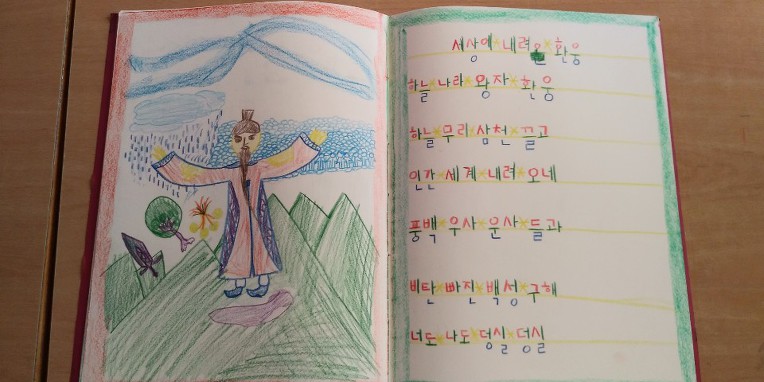 세상에 내려온 환웅
하늘 나라 왕자 환웅
하늘 무리 삼천 끌고
인간 세계 내려 오네
풍백 우사 운사 들과
비탄 빠진 백성 구해
너도 나도 덩실 덩실